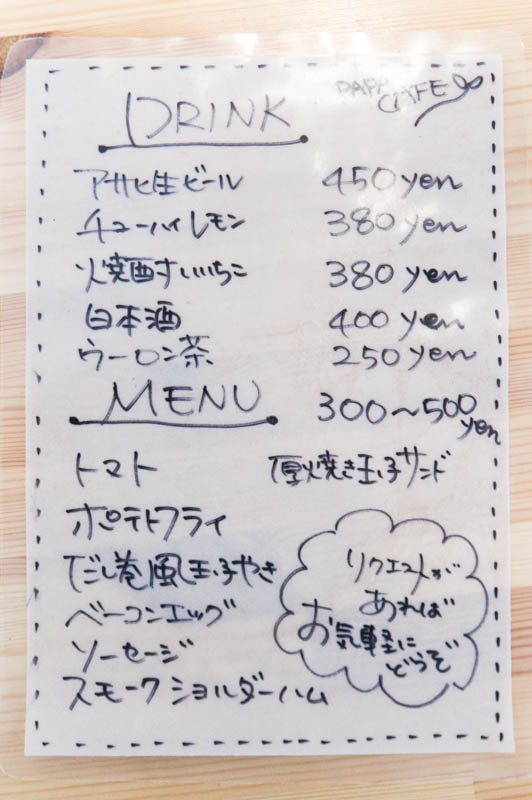 CAFE
DRINK
アサヒ生ビール 450yen
チューハイレモン 380yen
焼酎すいいちこ 380yen
日本酒 400yen
ウーロン茶 250yen
MENU 300~500yen
トマト 厚焼き玉子サンド
ポテトフライ
だし巻風玉子やき
ベーコンエッグ
ソーセージ
スモークショルダーハム
リクエストが
あれば
お気軽に
どうぞ